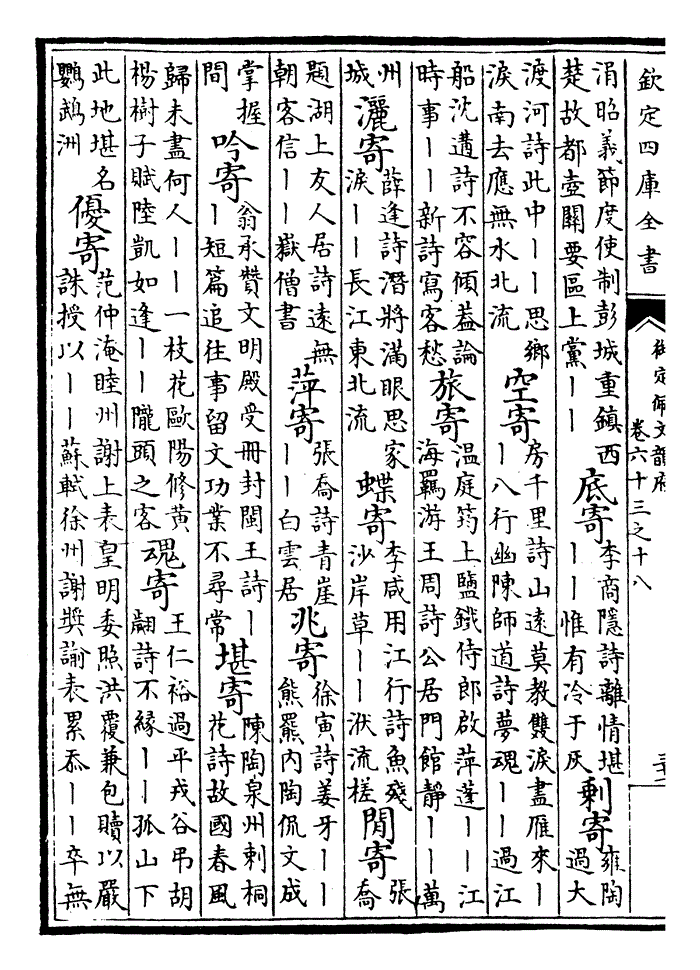 欽定四庫全書
御定佩文韻府
卷六十三之十八
涓昭義節度使制彭城重鎮西
楚故都壺關要區上黨丨丨
底寄
李商隱詩離情堪
丨丨惟有冷于灰
剩寄
雍陶
過大
渡河詩此中丨丨思鄉
淚南去應無水北流
空寄
房千里詩山遠莫教雙淚盡雁來丨
丨八行幽陳師道詩夢魂丨丨過江
船沈遘詩不容傾蓋論
時事丨丨新詩寫客愁
旅寄
溫庭筠上鹽鐵侍郎啟萍蓬丨丨江
海羈游王周詩公居門館靜丨丨萬
州
城
灑寄
薛逢詩潛將滿眼思家
淚丨丨長江東北流
蝶寄
李咸用江行詩魚殘
沙岸草丨丨洑流槎
閒寄
張
喬
題湖上友人居詩遠無
朝客信丨丨嶽僧書
萍寄
張喬詩青崖
丨丨白雲居
兆寄
徐寅詩姜牙丨丨
熊羆內陶侃文成
掌握
間
吟寄
翁承贊文明殿受冊封閩王詩丨
丨短篇追往事留文功業不尋常
堪寄
陳陶泉州刺桐
花詩故國春風
歸未盡何人丨丨一枝花歐陽修黃
楊樹子賦陸凱如逢丨丨隴頭之客
魂寄
王仁裕過平戎谷弔胡
翽詩不緣丨丨孤山下
此地堪名
鸚鵡洲
優寄
范仲淹睦州謝上表皇明委照洪覆兼包贖以嚴
誅授以丨丨蘇軾徐州謝奬諭表累忝丨丨卒無